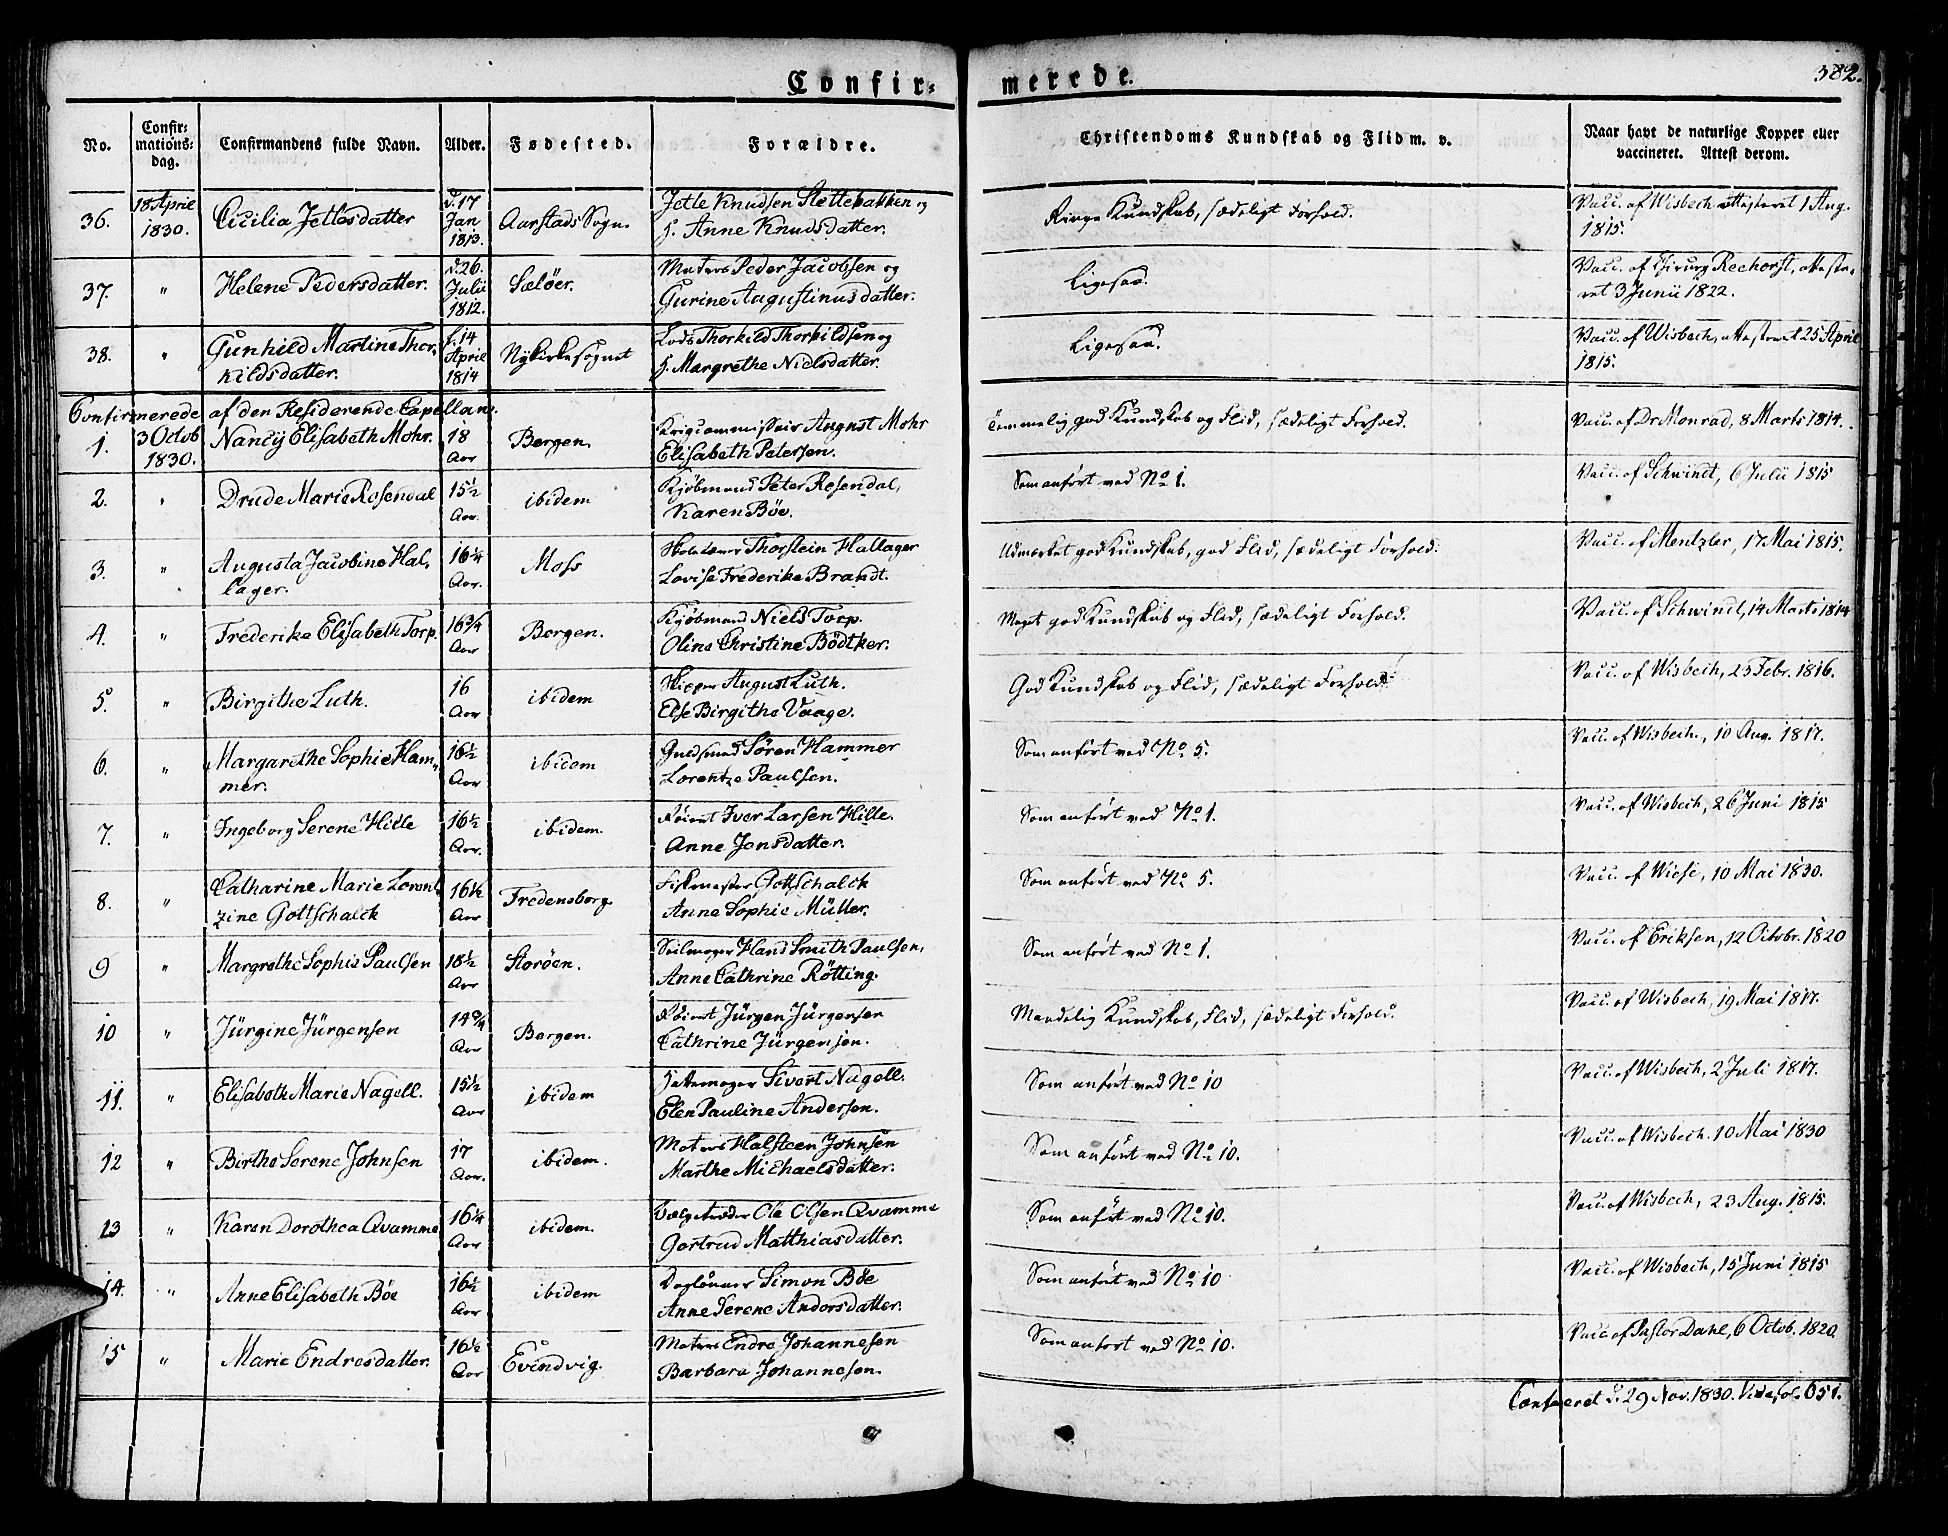 Confir=
merede.
382.
No.
Confir=
mations=
dag.
Confirmandens fulde Navn.
Alder.
Fødested.
Forældre.
Christendoms Kundskab og Flid m. v.
Naar havt de naturlige Kopper eller
vaccineret. Attest derom.
36.
18 April
1830.
Cicilia Jetlesdatter
d. 17
Jan
1813.
Aarstads Sogn.
Jetle Knudsen Slettebakken og
H. Anne Knudsdatter.
Ringe Kundskab, sædeligt Forhold.
Vacc. af Wisbech attesteret 1 Aug.
1815.
37.
"
Helene Pedersdatter.
d. 26.
Julii
1812.
Sæløer.
Matros Peder Jacobsen og
Gurine Augustinusdatter.
Ligesaa.
Vacc. af Chirurg Rechorst, atteste-
ret 3 Junii 1822.
38.
"
Gunhild Martine Thor-
kildsdatter.
d. 14
April
1814
Nykirkesognet
Lods Thorkild Thorkildsen og
H. Margrethe Nielsdatter.
Ligesaa.
Vacc. af Wisbech, attesteret 25 April
1815.
Confirmerede af den Residerende Capellan.
1.
3 Octob
1830.
Nancy Elisabeth Mohr.
18
Aar
Bergen.
Krigscommissair August Mohr
Elisabeth Petersen.
Temmelig god Kundskab og Flid, sædeligt Forhold.
Vacc. af Dr Monrad, 8 Marts 1814.
2.
"
Drude Marie Rosendal
15½
Aar.
ibidem
Kjøbmand Peter Rosendal,
Karen Böe.
Som anført ved No 1.
Vacc. af Schwindt, 6 Julii 1815
3.
"
Augusta Jacobine Hal-
lager.
16¼
Aar.
Moss
Thorstein Hallager
Lovise Frederike Brandt.
Udmærket god Kundskab, god Flid, sædeligt Forhold.
Vacc. af Mentzler, 17 Mai 1815.
4.
"
Frederike Elisabeth Torp.
16¾
Aar
Bergen.
Kjøbmand Niels Torp.
Oline Christine Bödtker.
Meget god Kundskab og Flid, sædeligt Forhold.
Vacc. af Schwindt, 14 Marts 1814
5.
"
Birgithe Luth.
16
Aar
ibidem
Skipper August Luth.
Else Birgithe Vaage.
God Kundskab og Flid, sædeligt Forhold.
Vacc. af Wisbech, 25 Febr. 1816.
6.
"
Margarethe Sophie Ham-
mer.
16½
Aar
ibidem
Guldsmed Søren Hammer
Lorentze Paulsen.
Som anført ved No 5.
Vacc. af Wisbech., 10 Aug. 1817.
7.
"
Ingeborg Serene Hille
16½
Aar.
ibidem.
Iver Larsen Hille.
Anne Jensdatter.
Som anført ved No 1.
Vacc. af Wisbech, 26 Juni 1815
8.
"
Catharine Marie Lorent-
zine Gottschalck
16¼
Aar
Fredensborg.
Gottschalck
Anne Sophie Müller.
Som anført ved No 5.
Vacc. af Wiese, 10 Mai 1830.
9
"
Margrethe Sophie Paulsen
18½
Aar
Storöen.
Seilmager Hans Smith Paulsen,
Anne Cathrine Rötting.
Som anført ved No 1.
Vacc. af Eriksen, 12 Octobr. 1820
10
"
Jürgine Jürgensen
14¾
Aar
Bergen.
Jürgen Jürgensen
Cathrine Jürgensen.
Maadelig Kundskab, Flid, sædeligt Forhold.
Vacc. af Wisbech, 19 Mai 1817.
11.
"
Elisabeth Marie Nagell.
15½
Aar
ibidem
Hattemager Sivert Nagell.
Elen Pauline Andersen.
Som anført ved No 10
Vacc. af Wisbech, 2 Juli 1817.
12
"
Birthe Serene Johnsen
17
Aar.
ibidem.
Matros Halsteen Johnsen
Marthe Michaelsdatter.
Som anført ved No 10.
Vacc. af Wisbech. 10 Mai 1830
13
"
Karen Dorothea Qvamme
16¼
Aar
ibidem.
Ole Olsen Qvamme
Gertrud Matthiasdatter.
Som anført ved No 10.
Vacc. af Wisbech, 23 Aug. 1815.
14.
"
Anne Elisabeth Böe
16½
Aar
ibidem
Dagløner Simon Böe
Anne Serene Andersdatter.
Som anført ved No 10
Vacc. af Wisbech, 15 Juni 1815
15
"
Marie Endresdatter.
16½
Aar
Evindvig.
Matros Endre Johannesen
Barbara Johannesen.
Som anført ved No 10.
Vacc af Pastor Dahl, 6 Octob. 1820
Confereret d. 29 Nov. 1830. Vide fol. 651.